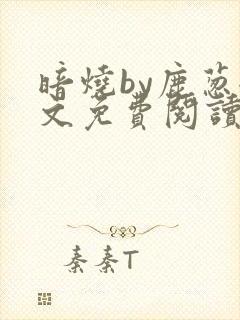 暗燒by鹿葱
文免費閱讀
秦秦T